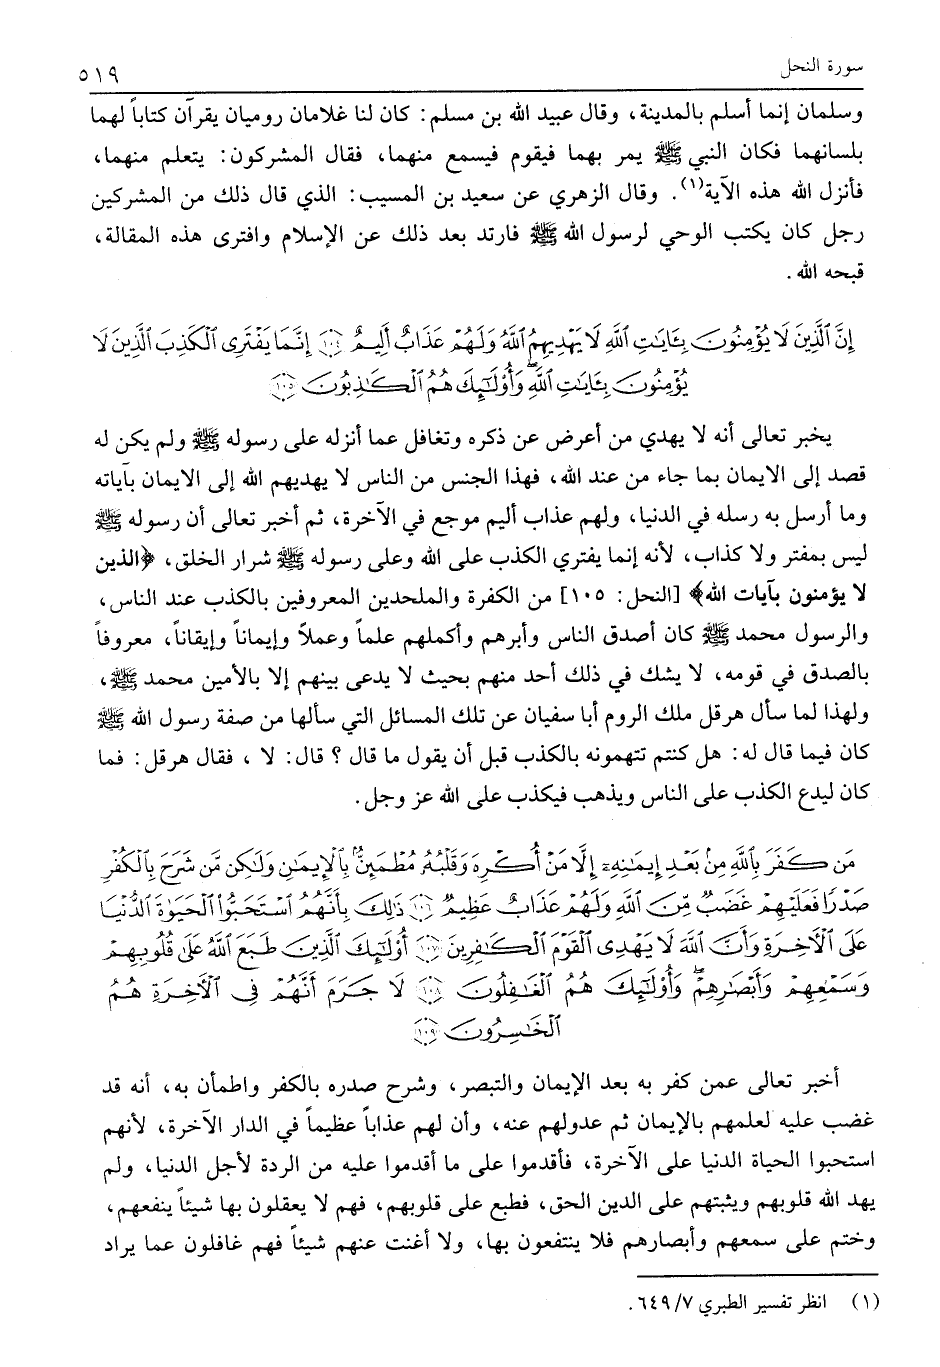 سورة النحل ٥١٩
وسلمان إنما أسلم بالمدينة، وقال عبيد الله بن مسلم: كان لنا غلامان روميان يقرآن كتاباً لهما
بلسانهما فكان النبي ﷺ يمر بهما فيقوم فيسمع منهما، فقال المشركون: يتعلم منهما،
فأنزل الله هذه الآية(١). وقال الزهري عن سعيد بن المسيب: الذي قال ذلك من المشركين
رجل كان يكتب الوحي لرسول الله ﷺ فارتد بعد ذلك عن الإسلام وافترى هذه المقالة،
قبحه الله.
إِنَّ ٱلَّذِينَ لَا يُؤْمِنُونَ بِـَٔايَـٰتِ ٱللَّهِ لَا يَهْدِيهِمُ ٱللَّهُ وَلَهُمْ عَذَابٌ أَلِيمٌ ١٠٤ إِنَّمَا يَفْتَرِى ٱلْكَذِبَ ٱلَّذِينَ لَا
يُؤْمِنُونَ بِـَٔايَـٰتِ ٱللَّهِ ۖ وَأُو۟لَـٰٓئِكَ هُمُ ٱلْكَـٰذِبُونَ ١٠٥
يخبر تعالى أنه لا يهدي من أعرض عن ذكره وتغافل عما أنزله على رسوله ﷺ ولم يكن له
قصد إلى الايمان بما جاء من عند الله، فهذا الجنس من الناس لا يهديهم الله إلى الايمان بآياته
وما أرسل به رسله في الدنيا، ولهم عذاب أليم موجع في الآخرة، ثم أخبر تعالى أن رسوله ﷺ
ليس بمفتر ولا كذاب، لأنه إنما يفتري الكذب على الله وعلى رسوله ﷺ شرار الخلق، ﴿الذين
لا يؤمنون بآيات الله﴾ [النحل: ١٠٥] من الكفرة والملحدين المعروفين بالكذب عند الناس،
والرسول محمد ﷺ كان أصدق الناس وأبرهم وأكملهم علماً وعملاً وإيماناً وإيقاناً، معروفاً
بالصدق في قومه، لا يشك في ذلك أحد منهم بحيث لا يدعى بينهم إلا بالأمين محمد ﷺ،
ولهذا لما سأل هرقل ملك الروم أبا سفيان عن تلك المسائل التي سألها من صفة رسول الله ﷺ
كان فيما قال له: هل كنتم تتهمونه بالكذب قبل أن يقول ما قال؟ قال: لا، فقال هرقل: فما
كان ليدع الكذب على الناس ويذهب فيكذب على الله عز وجل.
مَن كَفَرَ بِٱللَّهِ مِنۢ بَعْدِ إِيمَـٰنِهِۦٓ إِلَّا مَنْ أُكْرِهَ وَقَلْبُهُۥ مُطْمَئِنٌّۢ بِٱلْإِيمَـٰنِ وَلَـٰكِن مَّن شَرَحَ بِٱلْكُفْرِ
صَدْرًا فَعَلَيْهِمْ غَضَبٌ مِّنَ ٱللَّهِ وَلَهُمْ عَذَابٌ عَظِيمٌ ١٠٦ ذَٰلِكَ بِأَنَّهُمُ ٱسْتَحَبُّوا۟ ٱلْحَيَوٰةَ ٱلدُّنْيَا
عَلَى ٱلْـَٔاخِرَةِ وَأَنَّ ٱللَّهَ لَا يَهْدِى ٱلْقَوْمَ ٱلْكَـٰفِرِينَ ١٠٧ أُو۟لَـٰٓئِكَ ٱلَّذِينَ طَبَعَ ٱللَّهُ عَلَىٰ قُلُوبِهِمْ
وَسَمْعِهِمْ وَأَبْصَـٰرِهِمْ ۖ وَأُو۟لَـٰٓئِكَ هُمُ ٱلْغَـٰفِلُونَ ١٠٨ لَا جَرَمَ أَنَّهُمْ فِى ٱلْـَٔاخِرَةِ هُمُ
ٱلْخَـٰسِرُونَ ١٠٩
أخبر تعالى عمن كفر به بعد الإيمان والتبصر، وشرح صدره بالكفر واطمأن به، أنه قد
غضب عليه لعلمهم بالإيمان ثم عدولهم عنه، وأن لهم عذاباً عظيماً في الدار الآخرة، لأنهم
استحبوا الحياة الدنيا على الآخرة، فأقدموا على ما أقدموا عليه من الردة لأجل الدنيا، ولم
يهد الله قلوبهم ويثبتهم على الدين الحق، فطبع على قلوبهم، فهم لا يعقلون بها شيئاً ينفعهم،
وختم على سمعهم وأبصارهم فلا ينتفعون بها، ولا أغنت عنهم شيئاً فهم غافلون عما يراد
(١) انظر تفسير الطبري ٦٤٩/٧.